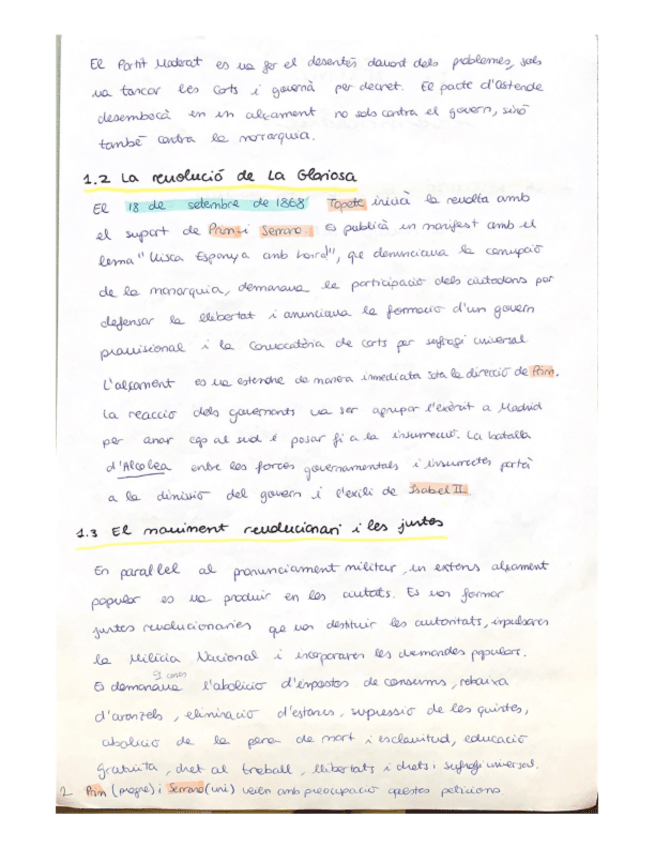 El Partit Moderat es va fer el desentés davant dels problemes, sols
va tancar les Corts i governà per decret. El pacte d'Ostende
desembocà en un alçament no sols contra el govern, sinó
també contra la monarquia.
1.2 La revolució de La Gloriosa
El 18 de setembre de 1868 Topete inicià la revolta amb
el suport de Prim i Serrano. Es publicà un manifest amb el
lema "Visca Espanya amb honra", que denunciava la corrupció
de la monarquia, demanava la participació dels ciutadans per
defensar la llibertat i anunciava la formació d'un govern
provisional i la convocatòria de corts per sufragi universal
L'alçament es va estendre de manera inmediata sota la direcció de Prim.
La reacció dels governants va ser agrupar l'exèrcit a Madrid
per anar cap al sud i posar fi a la insurrecció. La batalla
d'Alcolea entre les forces governamentals i insurrectes portà
a la dimissió del govern i l'exili de Isabel II
1.3 El moviment revolucionari i les juntes
En paral·lel al pronunciament militar, un extens alçament
popular es va produir en les ciutats. Es van formar
juntes revolucionaries que van destituir les autoritats, impulsaren
la Milícia Nacional i incorporaren les demandes populars.
Es demanava l'abolició d'impostos de consums, rebaixa
d'aranzels, eliminació d'estancs, supressió de les quintes,
abolició de la pena de mort i esclavitud, educació
gratuïta, dret al treball, llibertats i drets i sufragi universal.
2 Prim (progre) i Serrano (uni) veien amb preocupació questes peticions